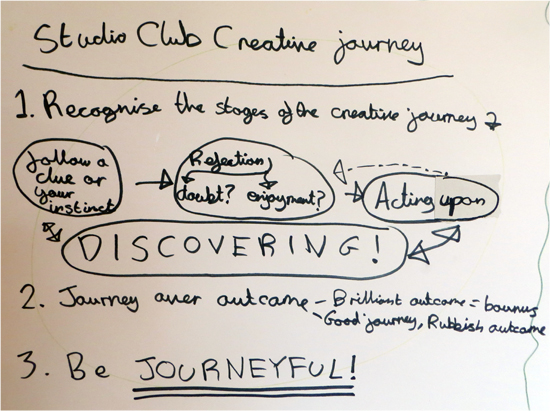 Studio Club Creative journey
1. Recognise the stages of the creative journey
Follow a
clue or
your
instinct
Reflection
doubt? enjoyment?
Acting upon
DISCOVERING!
2. Journey over outcome - Brilliant outcome = bounus
- Good journey, Rubbish outcome
3. Be JOURNEYFUL!